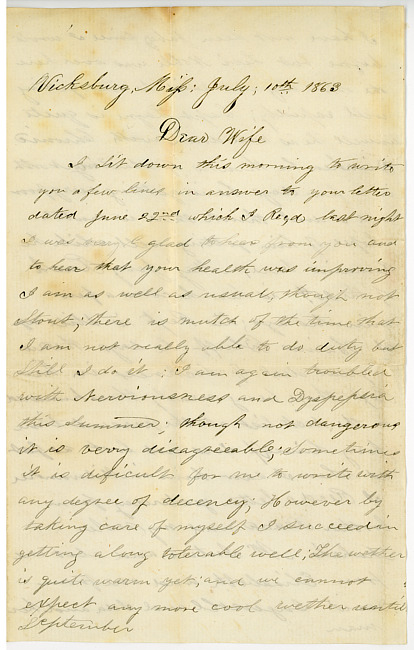 Vicksburg, Miss: July, 10th 1863
Dear Wife
I sit down this morning to write
you a few lines in answer to your letter
dated June 22nd which I Recd last night
I was very glad to hear from you and
to hear that your health was improving
I am as well as usual, though not
Stout; there is mutch of the time that
I am not really able to do duty but
Still I do it; I am again troubled
with Nerviousness and Dyspepsia
this Summer; though not dangerous
it is verry disagreeable; Sometimes
it is dificult for me to write with
any degree of decency; However by
taking care of myself I succeed in
getting along tolerable well; The wether
is quite warm yet; and we cannot
expect any more cool wether until
September